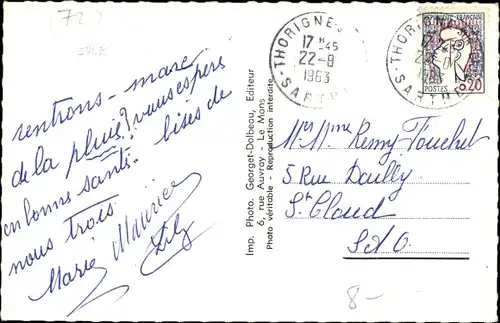 (72)
rentrons - marre
de la pluie? vous espère
en bonne santé. bises de
nous trois
Marie Maurice
Imp. Photo. Georget-Dolbeau, Editeur
6, rue Auvray - Le Mans
Photo véritable - Reproduction interdite
THORIGNE
17 H -45
22-8
1963
SARTHE
THORIGNE
SARTHE
REPUBLIQUE FRANCAISE
POSTES 0,20
Mr Mme Remy Fouchet
5 Rue Dailly
St Cloud
S et O.
8-